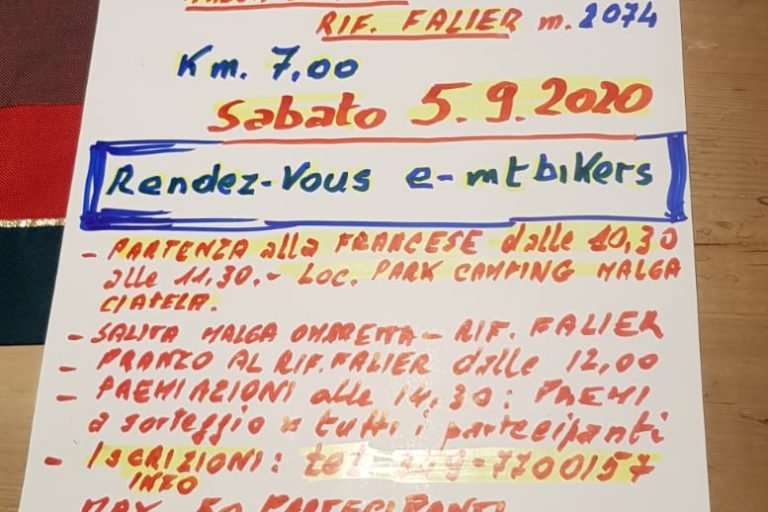 RIF. FALIER m. 2074
Km. 7,00
Sabato 5.9.2020
Rendez-Vous e-mtbikers
- PARTENZA alla FRANCESE dalle 10,30
alle 11,30.- LOC. PARK CAMPING MALGA
CIAPELA.
- SALITA MALGA OMBRETTA - RIF. FALIER
- PRANZO AL RIF. FALIER dalle 12,00
- PREMIAZIONI alle 14,30: PREMI
a sorteggio x tutti i partecipanti
- ISCRIZIONI: tel. -7700157
INFO
MAX. 50 PARTECIPANTI